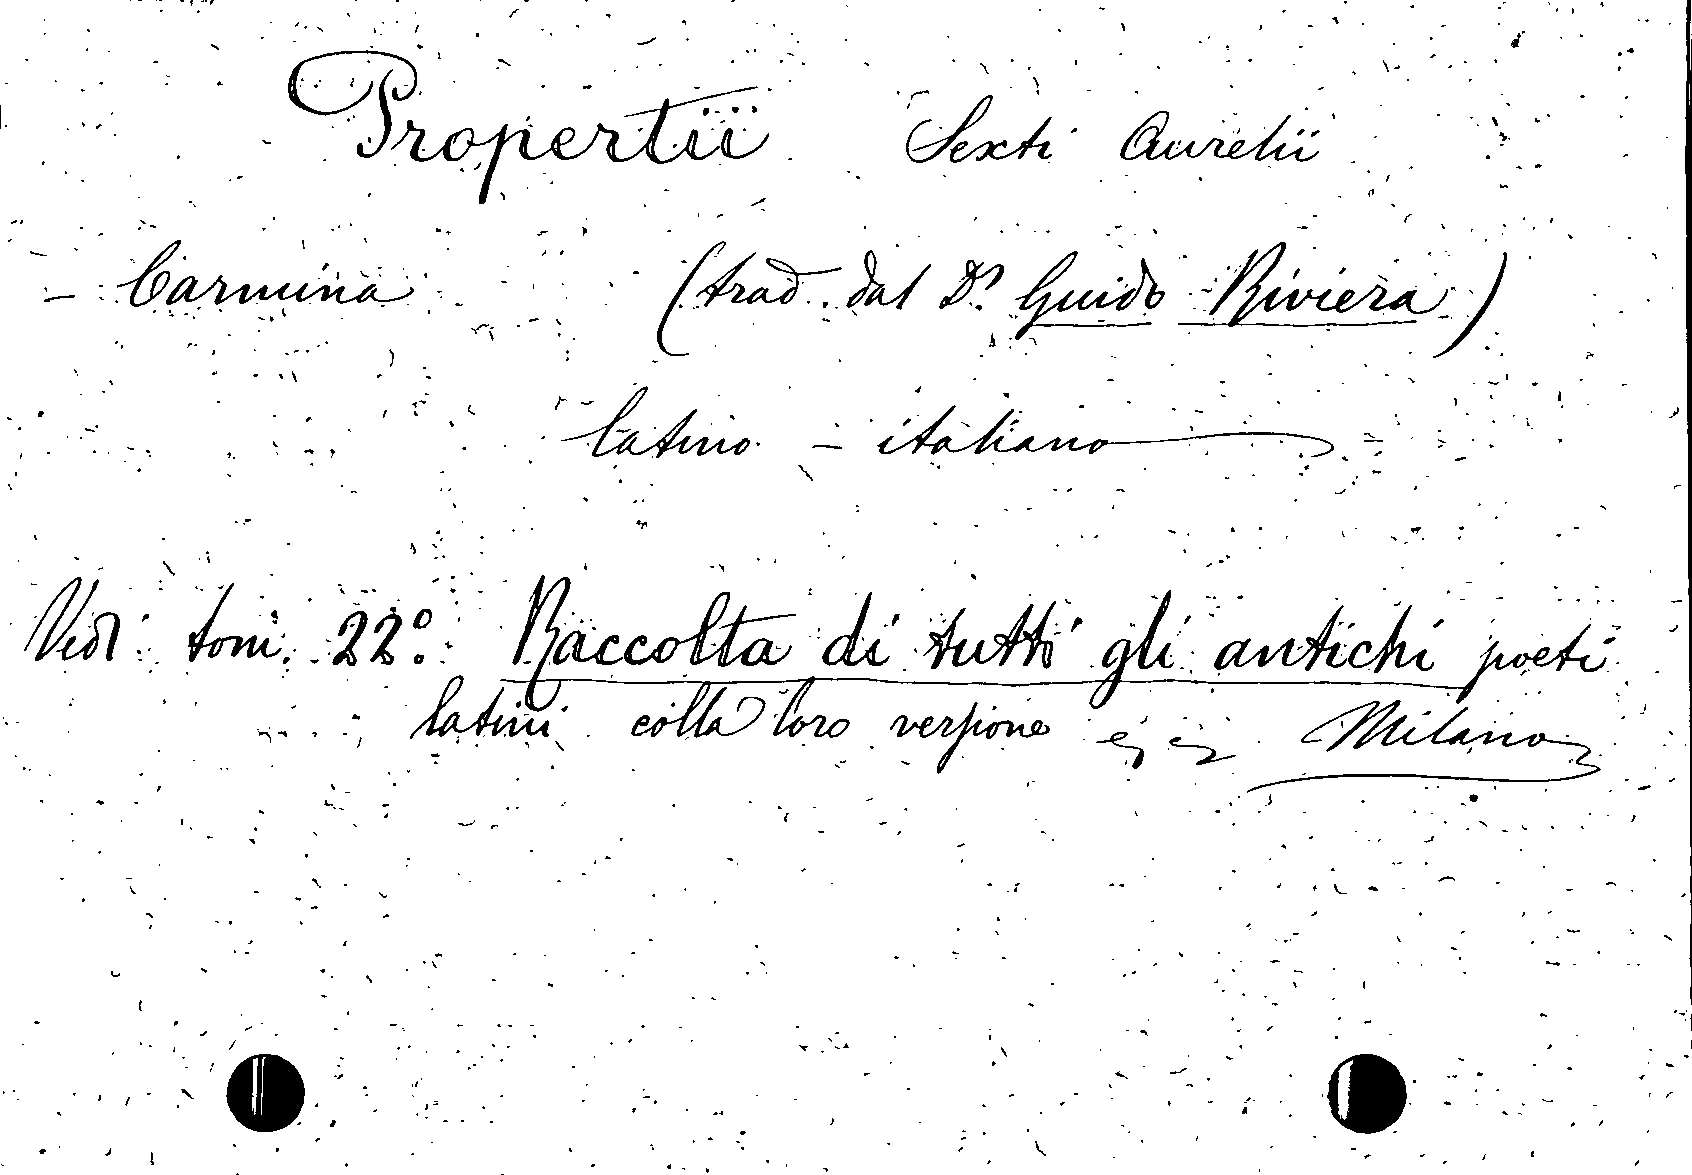 Propertii Sexti Aurelii
- Carmina (trad. dal Dr Guido Riviera)
latino - italiano
Vedi tom. 22º. Raccolta di tutti gli antichi poeti
latini colla loro versione Milano